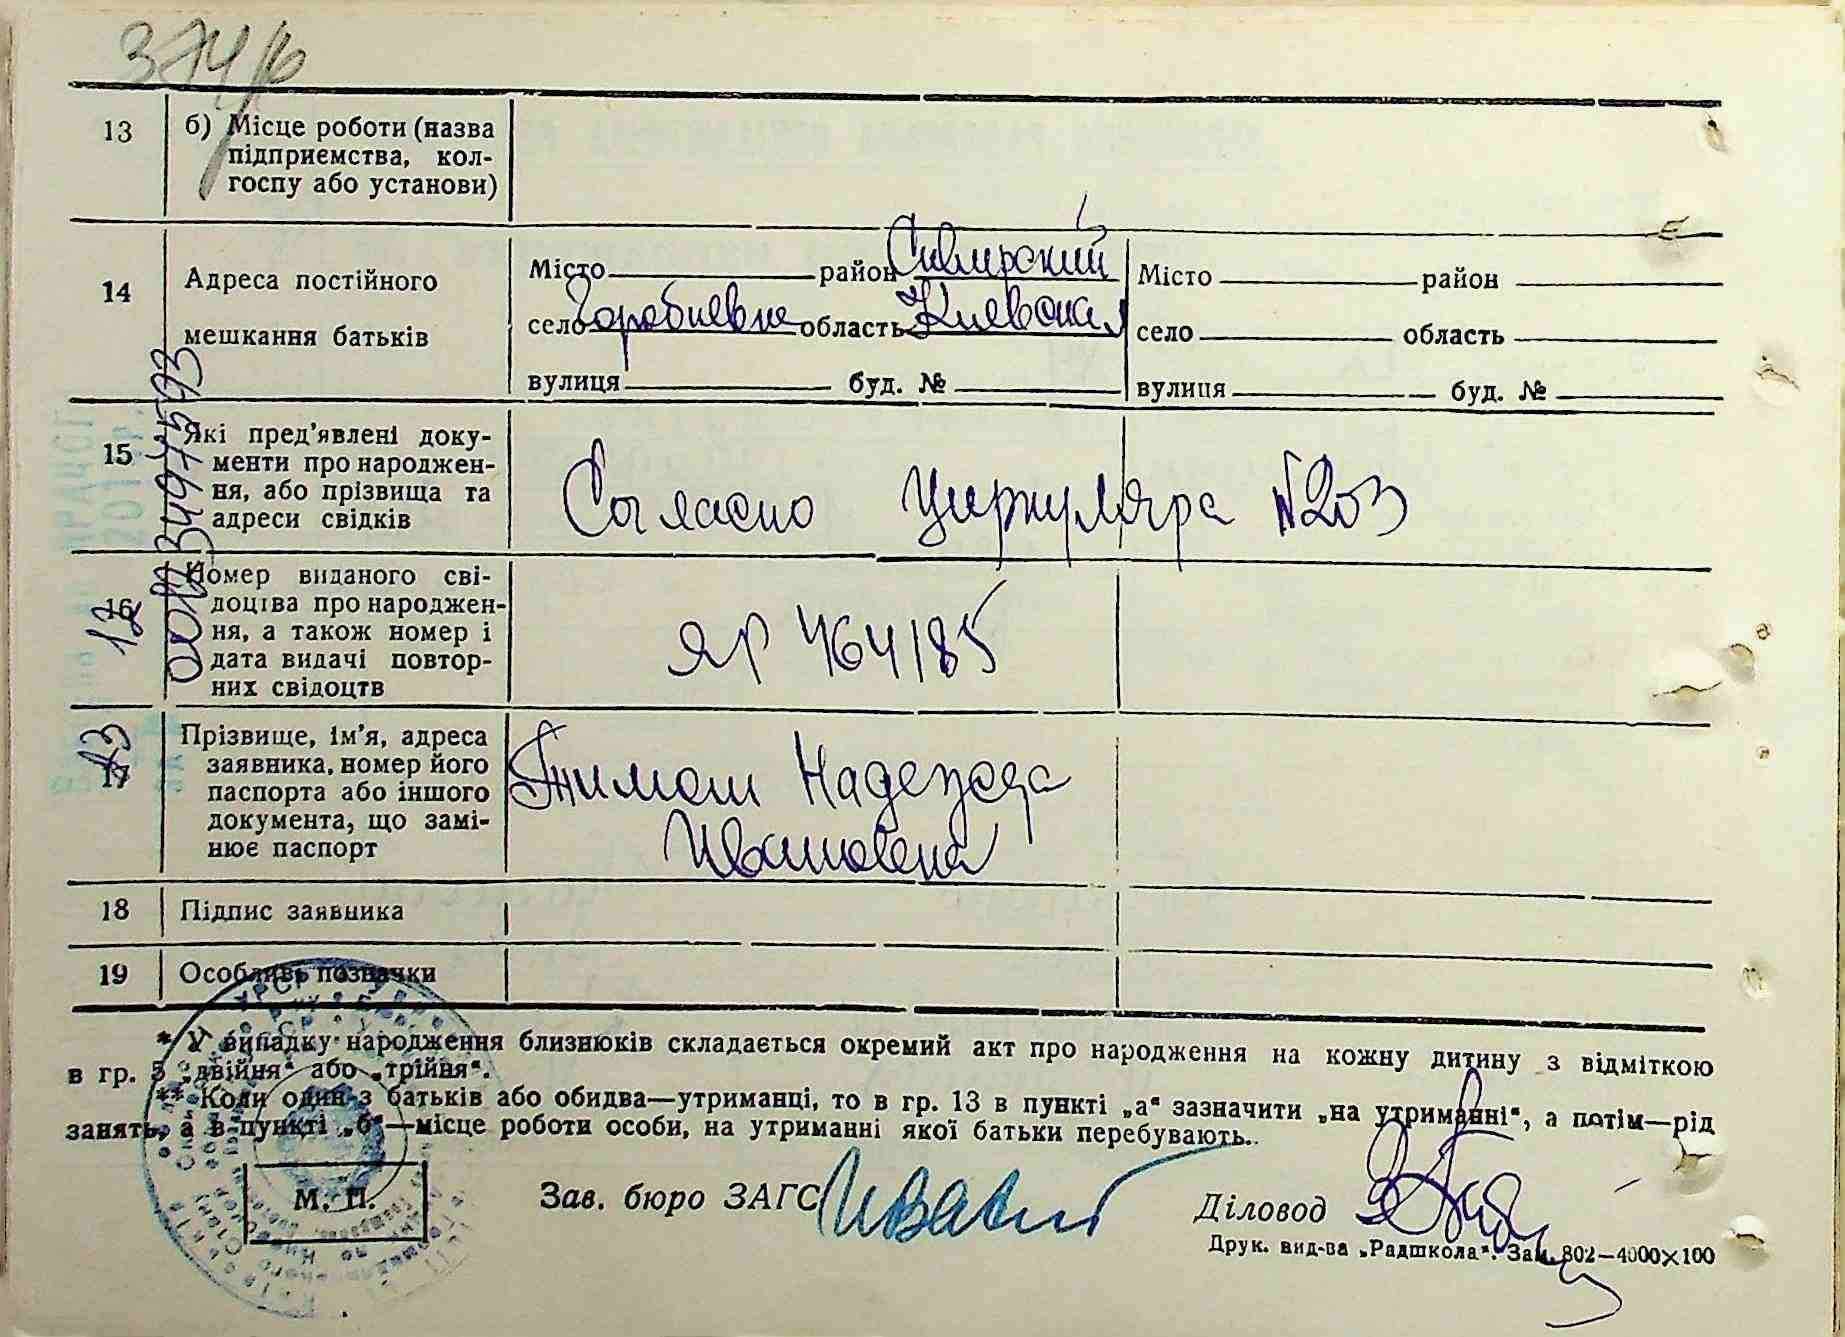 374/6
13 б) Місце роботи (назва
підприємства, кол-
госпу або установи)
14 Адреса постійного
мешкання батьків
Місто район Сквирский
село Горобиевке область Киевская
вулиця буд. №
Місто район
село область
вулиця буд. №
15 Які пред'явлені доку-
менти про народжен-
ня, або прізвища та
адреси свідків
Согласно Циркуляра №203
16 Номер виданого сві-
доцтва про народжен-
ня, а також номер і
дата видачі повтор-
них свідоцтв
ЯР 464185
17 Прізвище, ім'я, адреса
заявника, номер його
паспорта або іншого
документа, що замі-
нює паспорт
Надежда
Ивановна
18 Підпис заявника
19 Особливі позначки
* У випадку народження близнюків складається окремий акт про народження на кожну дитину з відміткою
в гр. 5 „двійня" або „трійня".
** Коли один з батьків або обидва—утриманці, то в гр. 13 в пункті „а" зазначити „на утриманні", а потім—рід
занять, а в пункті „б"—місце роботи особи, на утриманні якої батьки перебувають.
М. П.
Зав. бюро ЗАГС
Діловод
Друк. вид-ва „Радшкола". Зам. 802—4000×100